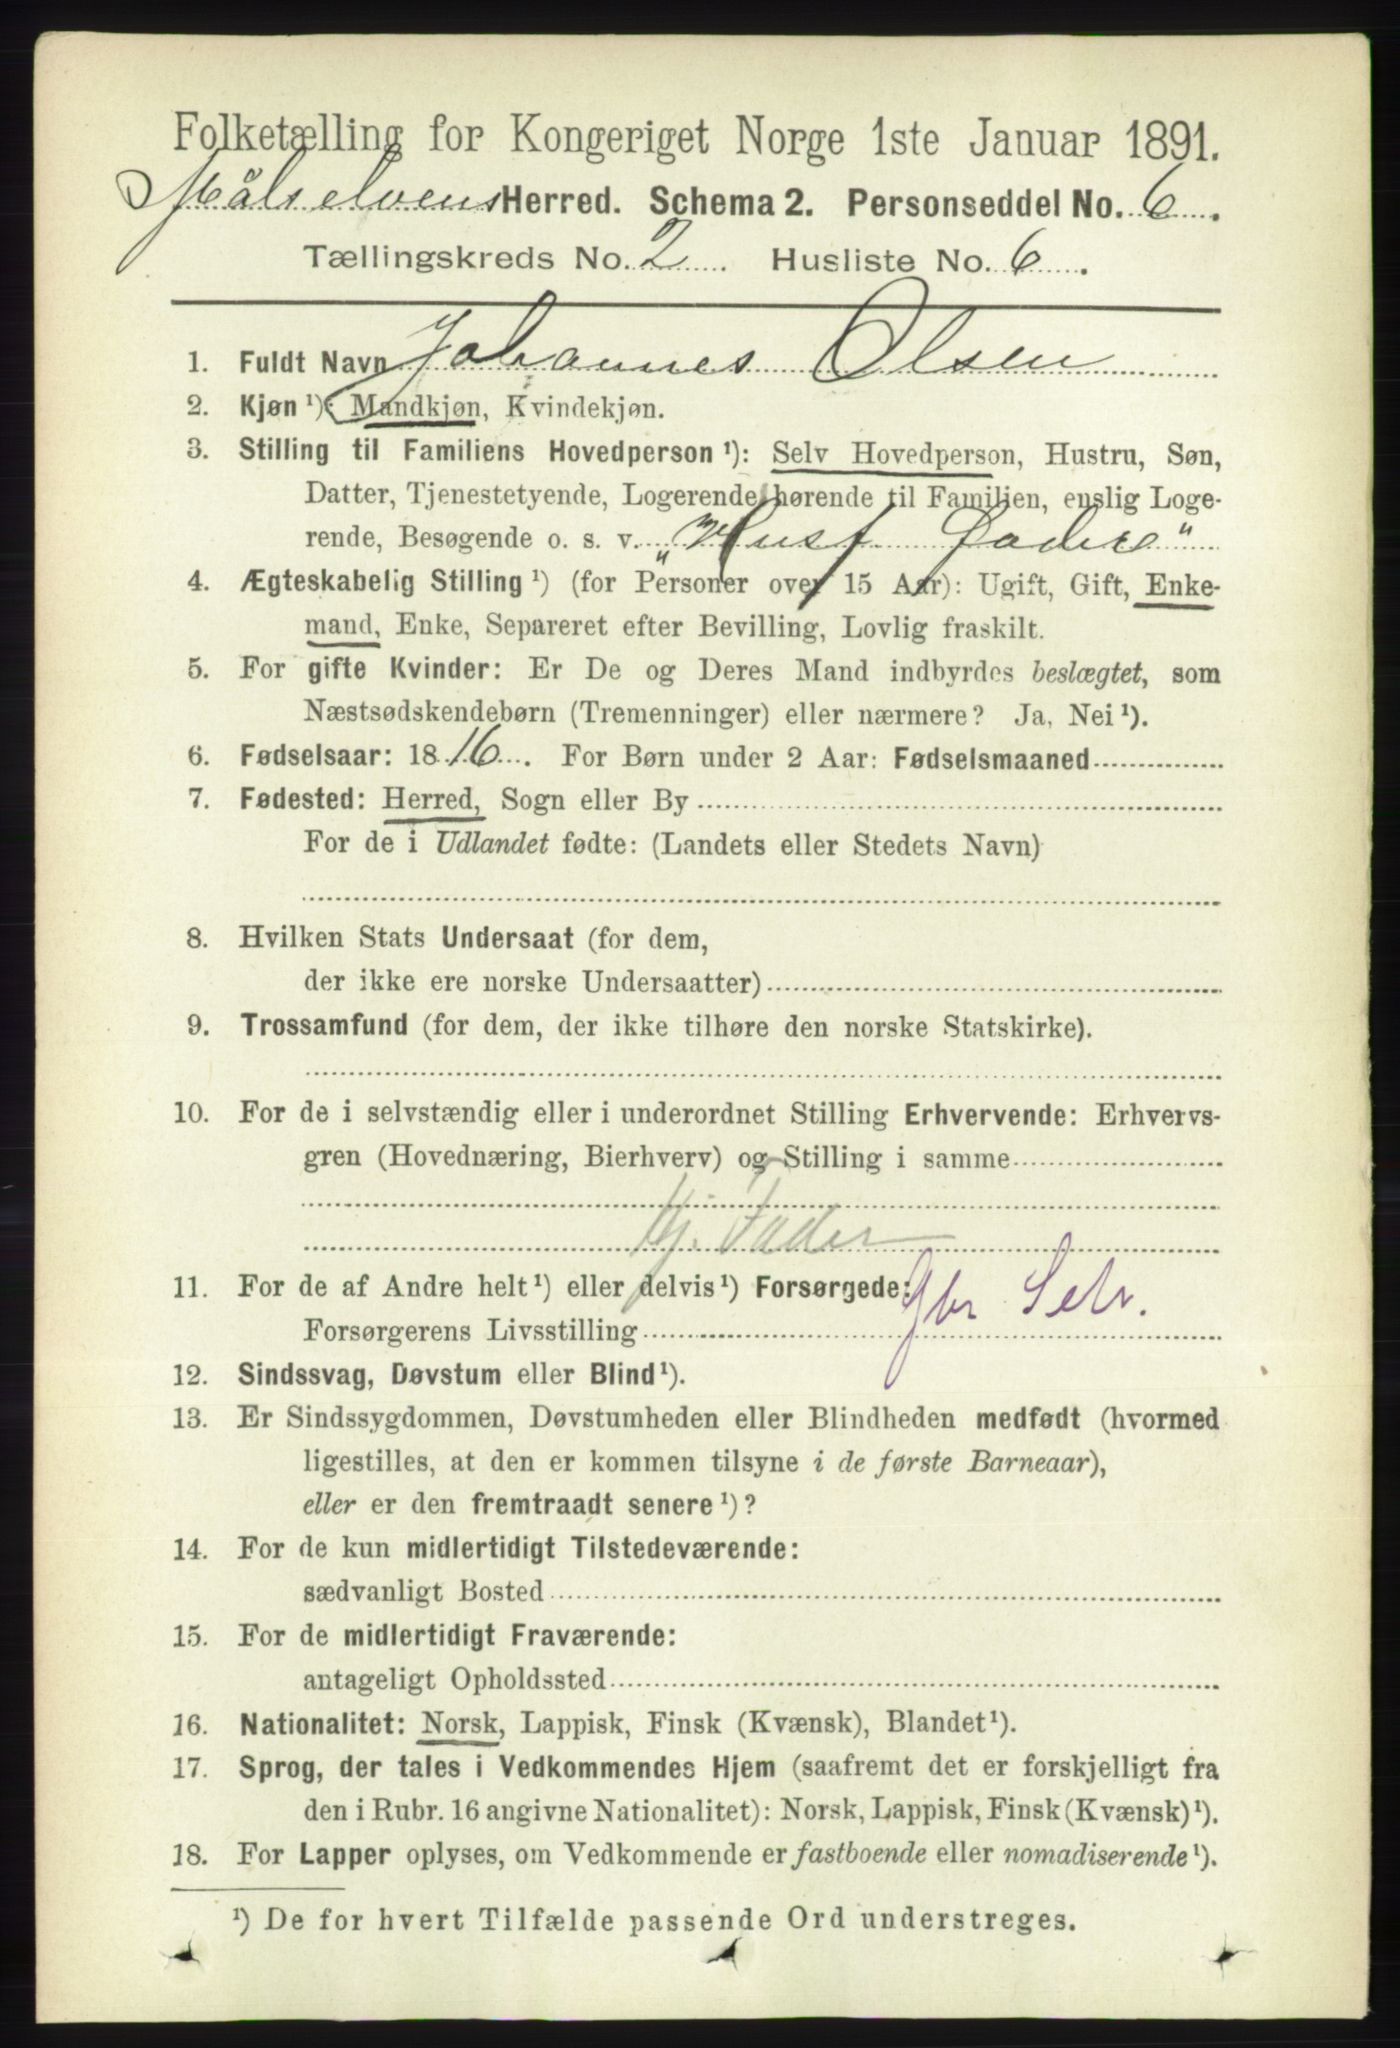 Folketælling for Kongeriget Norge 1ste Januar 1891.
Målselvens Herred. Schema 2. Personseddel No. 6.
Tællingskreds No. 2. Husliste No. 6.
1. Fuldt Navn Johannes Olsen
2. Kjøn ¹): Mandkjøn, Kvindekjøn.
3. Stilling til Familiens Hovedperson ¹): Selv Hovedperson, Hustru, Søn,
Datter, Tjenestetyende, Logerende hørende til Familien, enslig Loge-
rende, Besøgende o. s. v. „Husf. Fader"
4. Ægteskabelig Stilling ¹) (for Personer over 15 Aar): Ugift, Gift, Enke-
mand, Enke, Separeret efter Bevilling, Lovlig fraskilt.
5. For gifte Kvinder: Er De og Deres Mand indbyrdes beslægtet, som
Næstsødskendebørn (Tremenninger) eller nærmere? Ja, Nei ¹).
6. Fødselsaar: 1816. For Børn under 2 Aar: Fødselsmaaned
7. Fødested: Herred, Sogn eller By
For de i Udlandet fødte: (Landets eller Stedets Navn)
8. Hvilken Stats Undersaat (for dem,
der ikke ere norske Undersaatter)
9. Trossamfund (for dem, der ikke tilhøre den norske Statskirke).
10. For de i selvstændig eller i underordnet Stilling Erhvervende: Erhvervs-
gren (Hovednæring, Bierhverv) og Stilling i samme
Fader
11. For de af Andre helt ¹) eller delvis ¹) Forsørgede: Gbr Selv.
Forsørgerens Livsstilling
12. Sindssvag, Døvstum eller Blind ¹).
13. Er Sindssygdommen, Døvstumheden eller Blindheden medfødt (hvormed
ligestilles, at den er kommen tilsyne i de første Barneaar),
eller er den fremtraadt senere ¹)?
14. For de kun midlertidigt Tilstedeværende:
sædvanligt Bosted
15. For de midlertidigt Fraværende:
antageligt Opholdssted
16. Nationalitet: Norsk, Lappisk, Finsk (Kvænsk), Blandet ¹).
17. Sprog, der tales i Vedkommendes Hjem (saafremt det er forskjelligt fra
den i Rubr. 16 angivne Nationalitet): Norsk, Lappisk, Finsk (Kvænsk) ¹).
18. For Lapper oplyses, om Vedkommende er fastboende eller nomadiserende ¹).
¹) De for hvert Tilfælde passende Ord understreges.